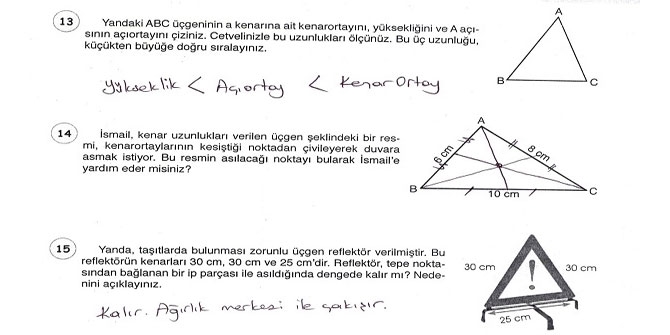 13 Yandaki ABC üçgeninin a kenarına ait kenarortayını, yüksekliğini ve A açı-
sının açıortayını çiziniz. Cetvelinizle bu uzunlukları ölçünüz. Bu üç uzunluğu,
küçükten büyüğe doğru sıralayınız.
A
B
C
Yükseklik < Açıortay < Kenar Ortay
14 İsmail, kenar uzunlukları verilen üçgen şeklindeki bir res-
mi, kenarortaylarının kesiştiği noktadan çivileyerek duvara
asmak istiyor. Bu resmin asılacağı noktayı bularak İsmail'e
yardım eder misiniz?
A
6 cm
8 cm
B
10 cm
C
15 Yanda, taşıtlarda bulunması zorunlu üçgen reflektör verilmiştir. Bu
reflektörün kenarları 30 cm, 30 cm ve 25 cm'dir. Reflektör, tepe nokta-
sından bağlanan bir ip parçası ile asıldığında dengede kalır mı? Nede-
nini açıklayınız.
30 cm
!
30 cm
25 cm
Kalır. Ağırlık merkezi ile çakışır.